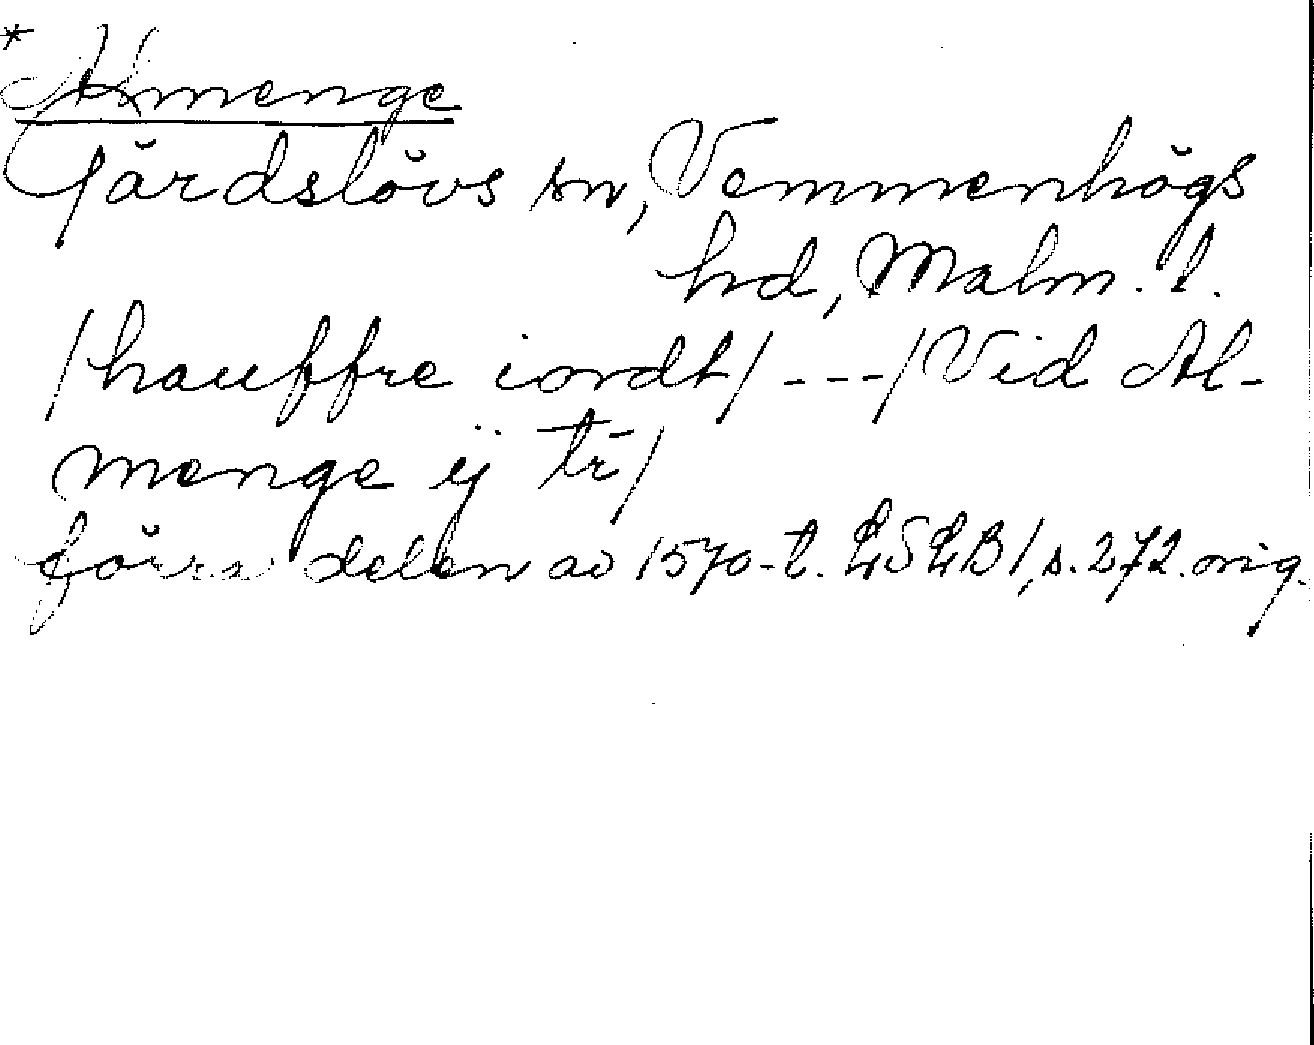 *Almenge
Gärdslövs sn, Vemmenhögs
hd, Malm. l.
/hauffre iordt/ ---/Vid Al-
menge ij tr̄/
förra delen av 1570-t. LSLB1, s. 272. orig.